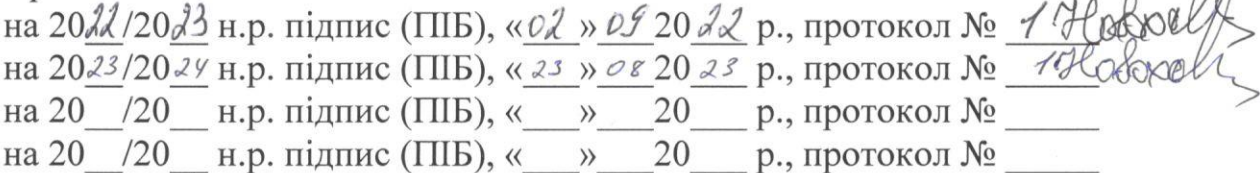 на 2022/2023 н.р. підпис (ПІБ), «02 » 09 2022 р., протокол № 1
на 2023/2024 н.р. підпис (ПІБ), « 23 » 08 2023 р., протокол № 1
на 20__/20__ н.р. підпис (ПІБ), «___»___20___ р., протокол № _____
на 20__/20__ н.р. підпис (ПІБ), «___»___20___ р., протокол № _____